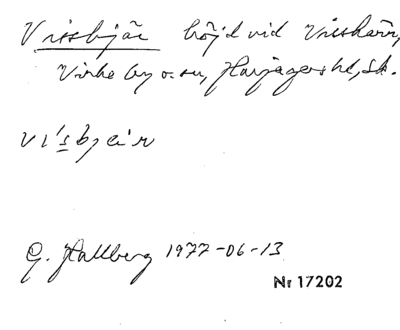 Vissbjär höjd vid Vissharn,
Virke by o. sn, Harjagers hd, Sk.
vi's̲bjei'r
G. Hallberg 1977-06-13
Nr 17202